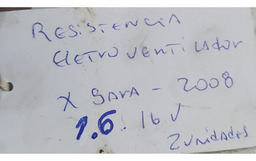 RESISTENCIA
ELETRO VENTILADOR
X SARA - 2008
1.6! 16 V
2 UNIDADES